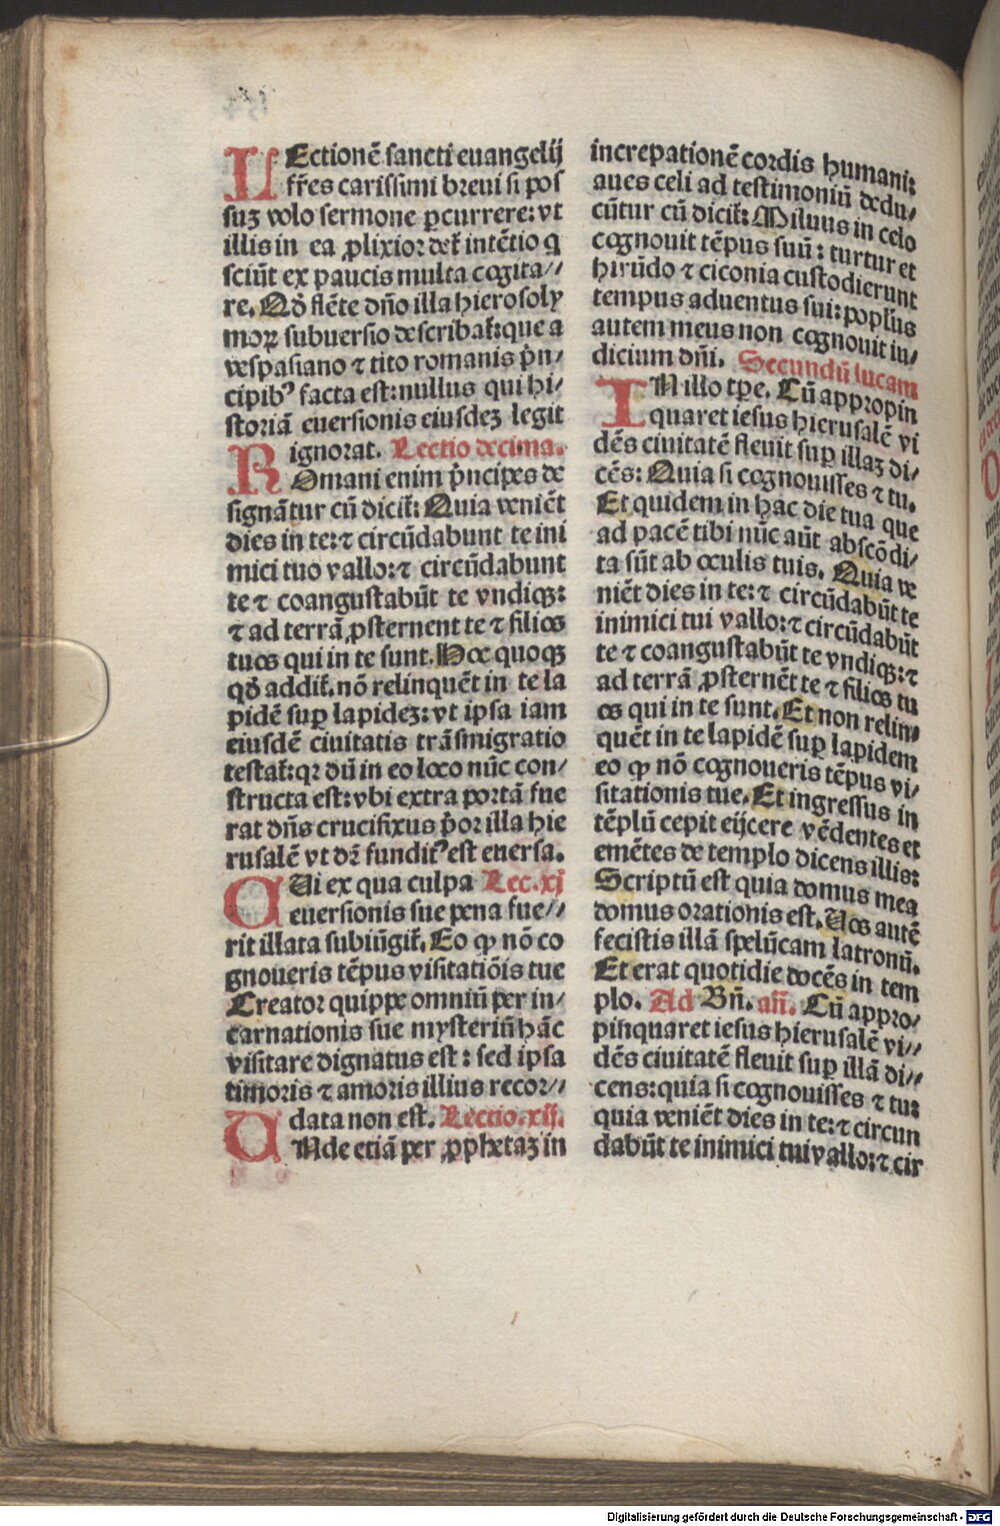 LEctionē sancti euangelij
fr̄es carissimi breui si pos
suꝫ volo sermone ꝑcurrere: vt
illis in ea ꝓlixior detꝭ intētio q
sciūt ex paucis multa cogita//
re. Qd̕ flēte dño illa hierosoly
moꝝ subuersio describatꝭ: que a
vespasiano ⁊ tito romanis p̄n/
cipibꝰ facta est: nullus qui hi/
storiā euersionis eiusdeꝫ legit
ignorat. Lectio decima.
ROmani enim p̄ncipes de
signātur cū dicitꝭ: Quia veniēt
dies in te: ⁊ circūdabunt te ini
mici tuo vallo: ⁊ circūdabunt
te ⁊ coangustabūt te vndiqꝫ:
⁊ ad terrā ꝓsternent te ⁊ filios
tuos qui in te sunt. Hoc quoqꝫ
qd̕ additꝭ. nō relinquēt in te la
pidē suꝑ lapideꝫ: vt ipsa iam
eiusdē ciuitatis trāsmigratio
testatꝭ: qꝛ dū in eo loco nūc con/
structa est: vbi extra portā fue
rat dñs crucifixus p̄or illa hie
rusalē vt dꝛ̄ funditꝰ est euersa.
QUi ex qua culpa Lec. xj
euersionis sue pena fue//
rit illata subiūgitꝭ. Eo ꝙ nō co
gnoueris tēpus visitatiōis tue
Creator quippe omniū per in/
carnationis sue mysteriū hāc
visitare dignatus est: sed ipsa
timoris ⁊ amoris illius recor//
data non est. Lectio. xij.
UNde etiā per ꝓphetaꝫ in
increpationē cordis humani:
aues celi ad testimoniū dedu/
cūtur cū dicitꝭ: Miluus in celo
cognouit tēpus suū: turtur et
hirūdo ⁊ ciconia custodierunt
tempus aduentus sui: popl̕us
autem meus non cognouit iu/
dicium dñi. Secundū lucam
IN illo tꝑe. Cū appropin
quaret iesus hierusalē vi
dēs ciuitatē fleuit suꝑ illaꝫ di/
cēs: Quia si cognouisses ⁊ tu.
Et quidem in hac die tua que
ad pacē tibi nūc aūt abscōdi/
ta sūt ab oculis tuis. Quia ve
niēt dies in te: ⁊ circūdabūt te
inimici tui vallo: ⁊ circūdabūt
te ⁊ coangustabūt te vndiqꝫ: ⁊
ad terrā ꝓsternēt te ⁊ filios tu
os qui in te sunt. Et non relin/
quēt in te lapidē suꝑ lapidem
eo ꝙ nō cognoueris tēpus vi/
sitationis tue. Et ingressus in
tēplū cepit eijcere vēdentes et
emētes de templo dicens illis:
Scriptū est quia domus mea
domus orationis est. Uos autē
fecistis illā spelūcam latronū.
Et erat quotidie docēs in tem
plo. Ad Bñ. añ. Cū appro/
pinquaret iesus hierusalē vi//
dēs ciuitatē fleuit suꝑ illā di//
cens: quia si cognouisses ⁊ tu:
quia veniēt dies in te: ⁊ circun
dabūt te inimici tui vallo: ⁊ cir
Digitalisierung gefördert durch die Deutsche Forschungsgemeinschaft - DFG